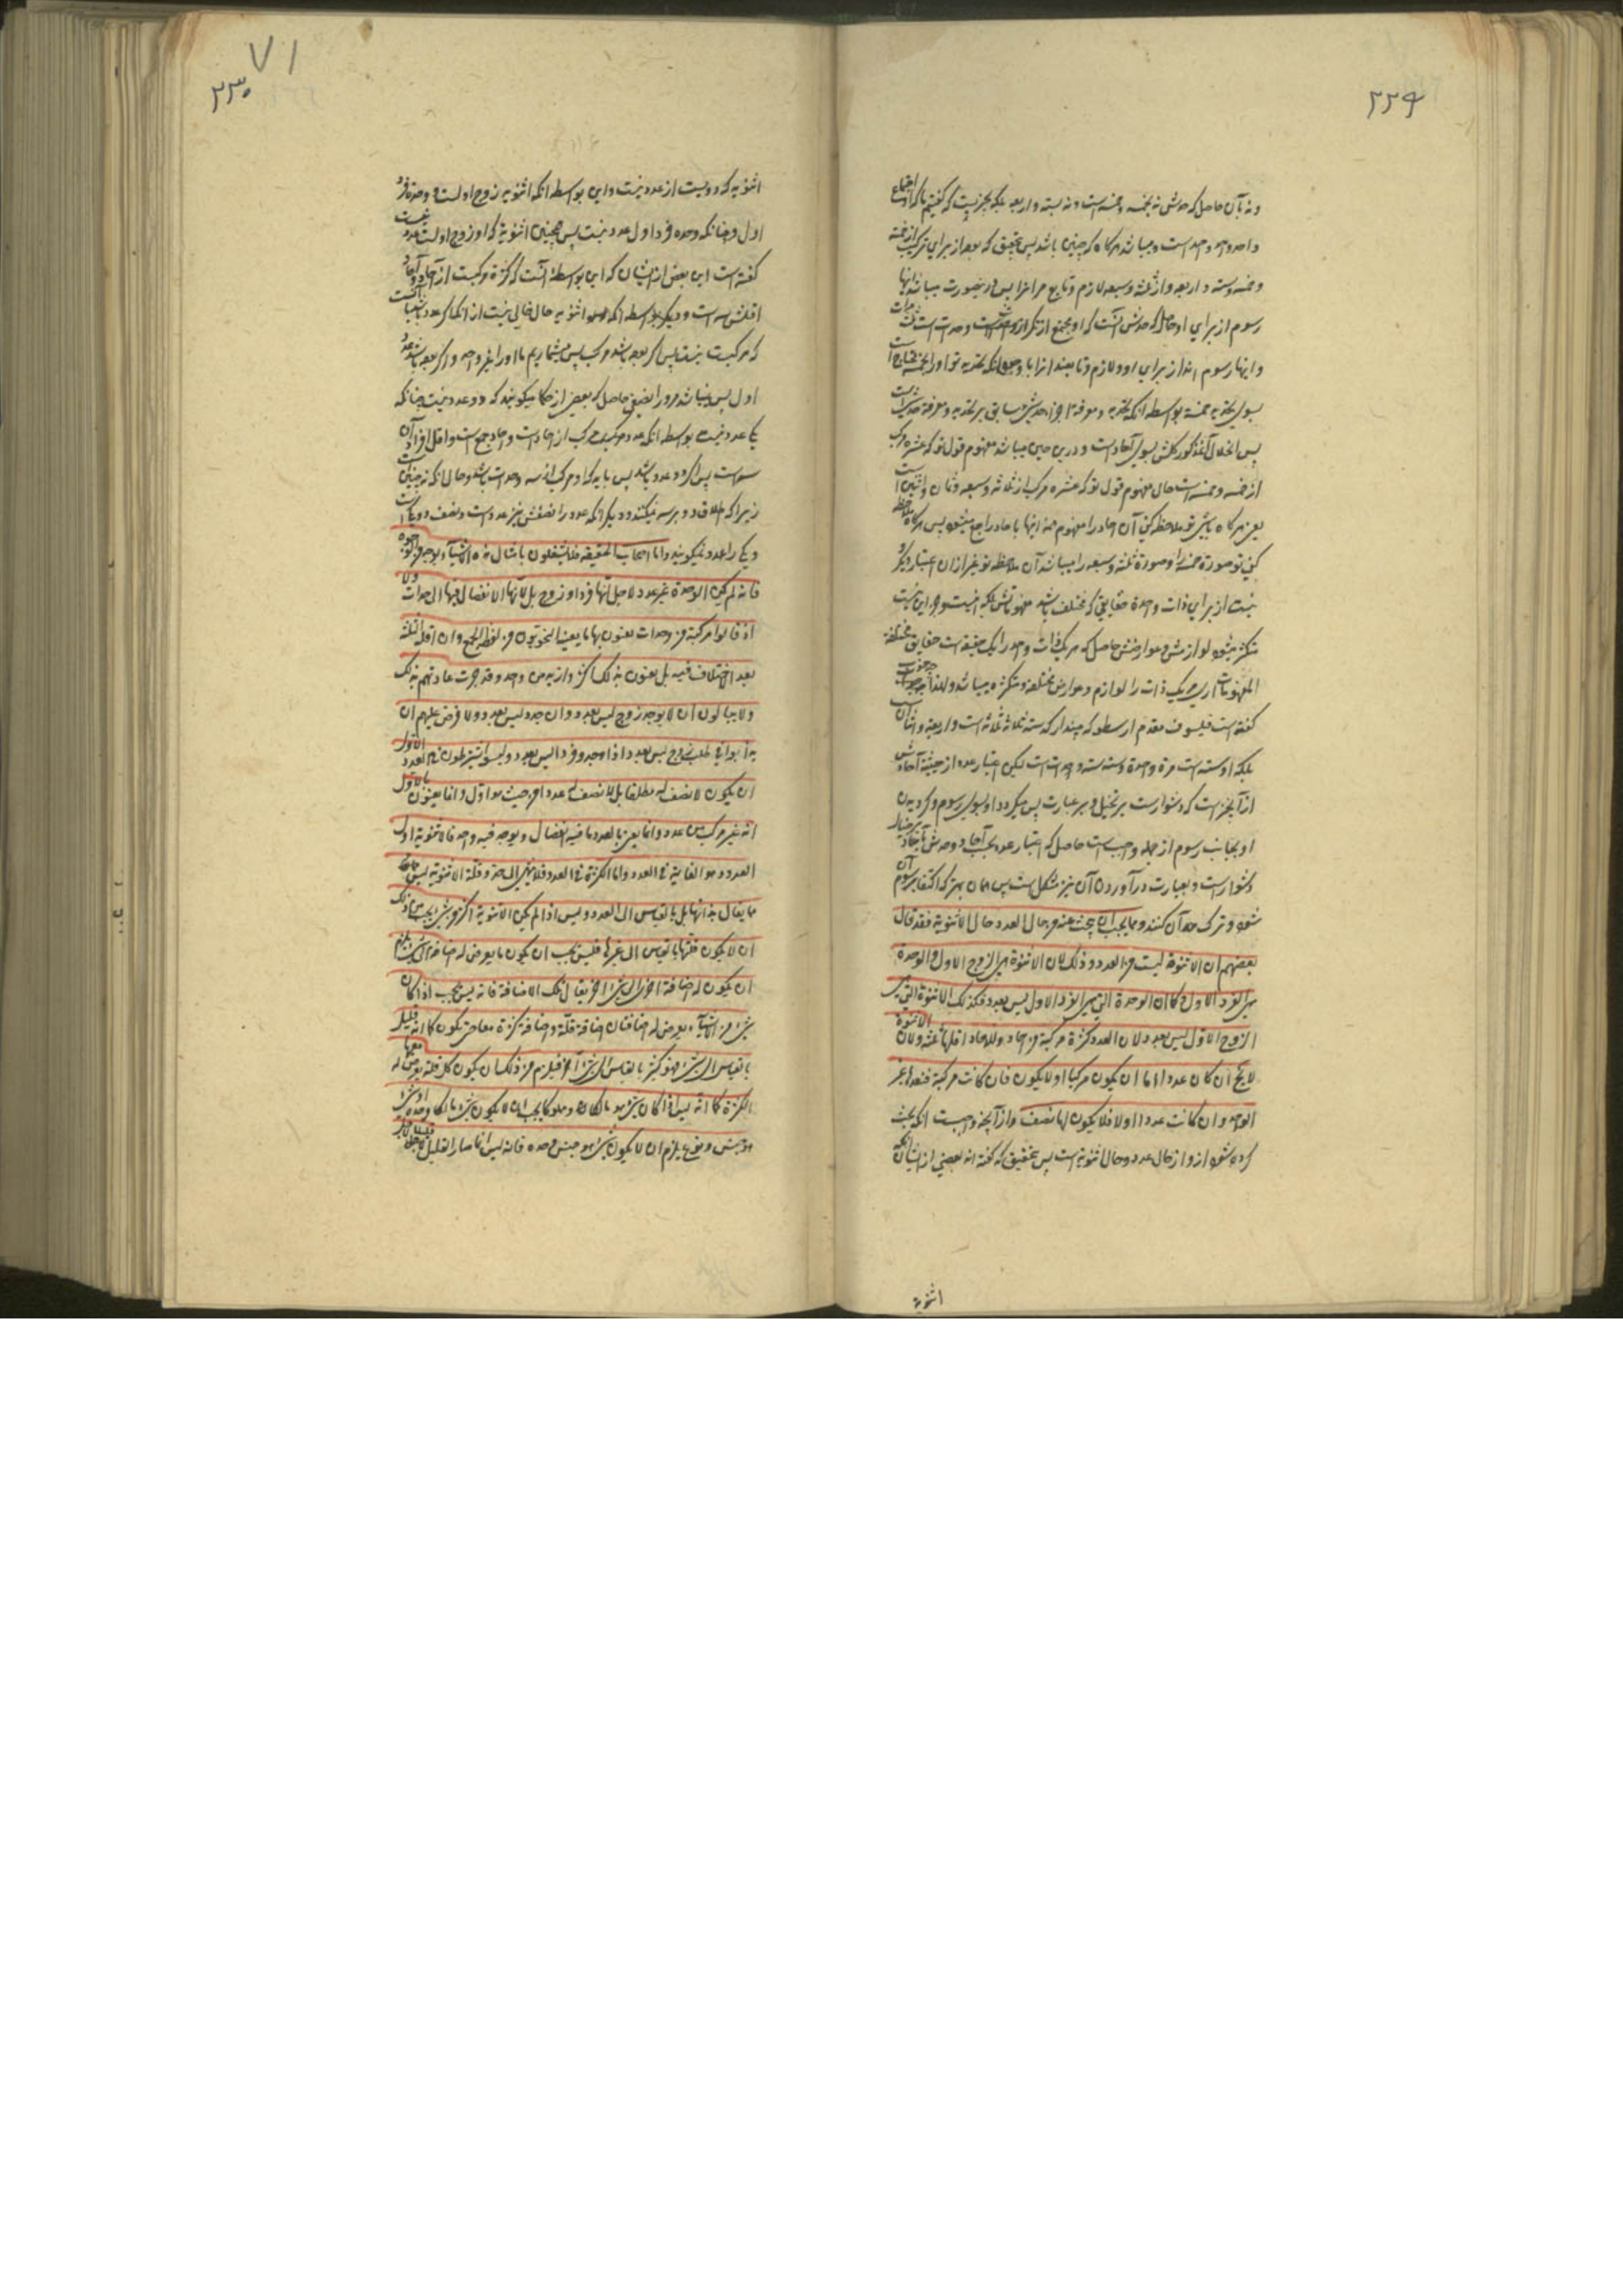 ۲۲۹
ونه بآن حاصل که حدش نه بخمسه وخمسه است ونه بسته واربعه بلکه بچیزیست که گفتیم ما که اجتماع
واحد واحد واحد است ومیباشد هر کاه که چنین باشد پس بتحقیق که بعد از برای ترکیب از خمسه
وخمسه وسته واربعه واز ثلثه وسبعه لازم وتابع مر انرا پس در اینصورت میباشد اینها
رسوم از برای او حاصل که حدش آنست که او مجتمع از تکرار وحدتست
واینها رسوم اند از برای او ولازم وتابعند انرا با وجود انکه تحدید تو او را بخمسه محتاج است
بسوی تحدید خمسه بواسطه انکه تحدید ومعرفة اجزاء حدش سابق بر تحدید ومعرفة خودش است
پس انحلال آغذکور کلش بسوی آحاد است ودرین حین میباشد مفهوم قول تو که عشره مرکب
از خمسه وخمسه است حال مفهوم قول تو که عشره مرکب از ثلاثه وسبعه وثمان واثنین است
یعنی هر کاه باشی تو ملاحظ کنی آن احاد را مفهوم همه اینها باحاد راجع میشود پس هر کاه ملاحظه
کنی تو صورة خمسه را وصورة ثلثه وسبعه را میباشد آن ملاحظه تو غیر ازان اعتبار دیگر و
نیست از برای ذات واحدة حقایقی که مختلف باشد مفهوماتش بلکه انیست وجز این نیست
متکثر میشود لوازمش وعوارضش حاصل که هر یک ذات واحد را یک حقیقة است حقایق مختلفة
المفهومات اری هر یک ذات را لوازم وعوارض مختلفه ومتکثره میباشد ولهذا
گفته است فیلسوف مقدم ارسطو که مپندار که سته ثلاثة وثلاثة است واربعة واثنان
بلکه او سته است مرة واحدة وسته سته وحدت است لیکن اعتبار عدد از حیثیة آحادش
از آنچیز است که دشوارست بر تخیل وبر عبارت پس میکردد او بسوی رسوم وکردیدن
او بجانب رسوم از جمله واجب است حاصل که اعتبار عدد بحسب آحاد وحدش
دشوارست وبعبارت درآوردن آن نیز مشکل است پس همان بهتر که اکتفا برسوم آن
شود وترک حد آن کنند ومما یجب ان یبحث عنه من حال العدد حال الاثنویة فقد قال
بعضهم ان الاثنوة لیست من العدد وذلک لان الاثنوة هی الزوج الاول والوحدة
هی الفرد الاول وکما ان الوحدة التی هی الفرد الاول لیس بعدد فکذلک الاثنوة التی هی
الزوج الاول لیس بعدد ولان العدد کثرة مرکبة من احاد والاحاد اقلها ثلثه ولان الاثنوة
لا یخ ان کان عددا اما ان یکون مرکبا او لا یکون فان کانت مرکبة فنعدها غیر
الواحد وان کانت عددا اولا فلا یکون لها نصف واز آنچه واجبست انکه بحث
کرده شود ازو از حال عدد وحال اثنویة است پس بتحقیق که گفته اند بعضی از ایشان انکه
اثنویة
۷۱
۲۳۰
اثنویه که دویست از عدد نیست واین بواسطه انکه اثنویه زوج اولست و وحدة فرد
اول وچنانکه وحده فرد اول عدد نیست پس همچنین اثنویة که او زوج اولست عدد نیست
گفته است این بعض از ایشان که این بواسطۀ آنست که کثرة مرکبست از آحاد وآحاد
اقلش سه است ودیگر بواسطه انکه اثنویه حال خالی نیست از انکه اکر عدد باشد یا آنست
که مرکبست نیست پس اکر بعد باشد مرکب پس میشماریم ما او را بغیر واحد واکر بعد باشد عدد
اول پس نمیباشد مر ورا نصفی حاصل که بعضی از حکما میکویند که دو عدد نیست چنانکه
یک عدد نیست بواسطه انکه عدد مرکب از احاد است واحاد جمع است واقل افراد آن
سه است پس اکر دو عدد باشد پس باید که او مرکب از سه وحدت باشد وحال انکه نه چنین است
زیرا که اطلاق دو بر سه نمیکنند ودیکر انکه عدد را نصفش نیز عدد است ونصف دو یک است
ویک را عدد نمیکویند واما اصحاب الحقیقه فلا یشتغلون بامثال هذه الاشیاء بوجه من الوجوه
فانه لم یکن الوحدة غیر عدد لاجل انها فرد او زوج بل لانها لا انفصال فیها الی وحدات ولا
اذ قالوا مرکبة من وحدات یعنون بها ما یعنیه النحویون من لفظ الجمع وان اقله ثلثه
بعد الاختلاف فیه بل یعنون بذلک اکثر وازید من واحد وقد جرت عادتهم بذلک
ولا یبالون ان لا یوجد زوج لیس بعدد وان وجد لیس بعدد ولا فرض علیهم ان
یدأبوا فی طلب زوج لیس بعدد اذا وجد وفرد لیس بعدد ولیسوا یشترطون فی العدد الاول
ان یکون لا نصف له مطلقا بل لا نصف له عددا من حیث هو اول وانما یعنون بالاول
انه غیر مرکب من عدد وانما یعنی بالعدد ما فیه انفصال ویوجد فیه واحد فالاثنویة اول
العدد وهو الغایة فی العدد واما الکثرة فی العدد فلا ینتهی الی حد وقلة الاثنویة لیس
مما یقال بذاتها بل بالقیاس الی العدد ولیس اذا لم یکن الاثنویة اکثر من شیء یجب من ذلک
ان لا یکون قلتها بالقیاس الی غیرها فلیس یجب ان یکون ما یعرض له اضافة الی شیء یلزم
ان یکون له اضافة اخری الی شیء اخر یقابل تلک الاضافة فانه لیس یجب اذا کان
شیء من الاشیاء یعرض له اضافتان اضافة قلة واضافة کثرة معا حتی یکون کما انه قلیل
بالقیاس الی شیء فهو کثیر بالقیاس الی شیء آخر فیلزم من ذلک ان یکون کل قلة یعرض له معها
الکثرة کما انه لیس اذا کان شیء هو مالکا ومملوکا یجب ان لا یکون شیء مالکا وحده او شیء
هو جنس ونوع یلزم ان لا یکون شیء هو جنس وحده فانه لیس انما صار القلیل قلیلا لاجل